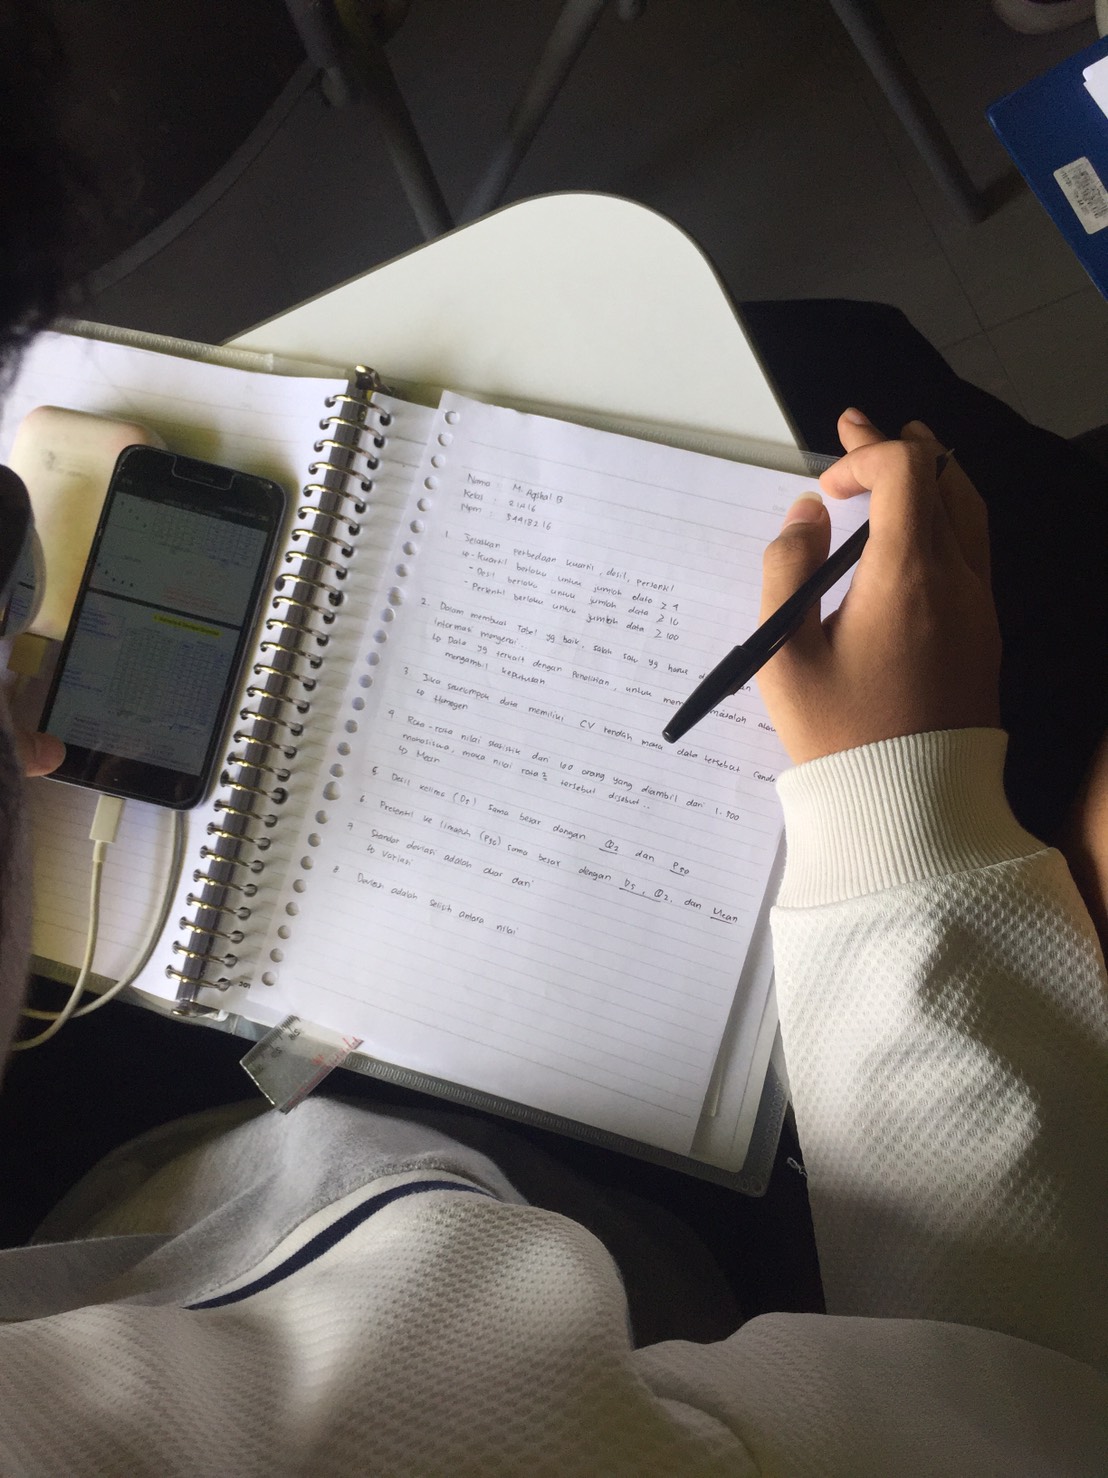 Nama : M. Aqshal B
Kelas : 21H16
Npm : 54418216
1. Jelaskan perbedaan kuartil, desil, persentil
↳ - Kuartil berlaku untuk jumlah data ≥ 4
- Desil berlaku untuk jumlah data ≥ 10
- Persentil berlaku untuk jumlah data ≥ 100
2. Dalam membuat Tabel yg baik, salah satu yg harus
informasi mengenai..
↳ Data yg terkait dengan penelitian, untuk masalah atau
mengambil keputusan
3. Jika sekelompok data memiliki CV rendah maka data tersebut
↳ Homogen
4. Rata-rata nilai statistik dari 100 orang yang diambil dari 1.900
mahasiswa, maka nilai rata2 tersebut disebut..
↳ Mean
5. Desil kelima (D5) sama besar dengan Q2 dan P50
6. Presentil ke limapuh (P50) sama besar dengan D5, Q2, dan Mean
7. Standar deviasi adalah akar dari
↳ Variasi
8. Deviasi adalah selisih antara nilai